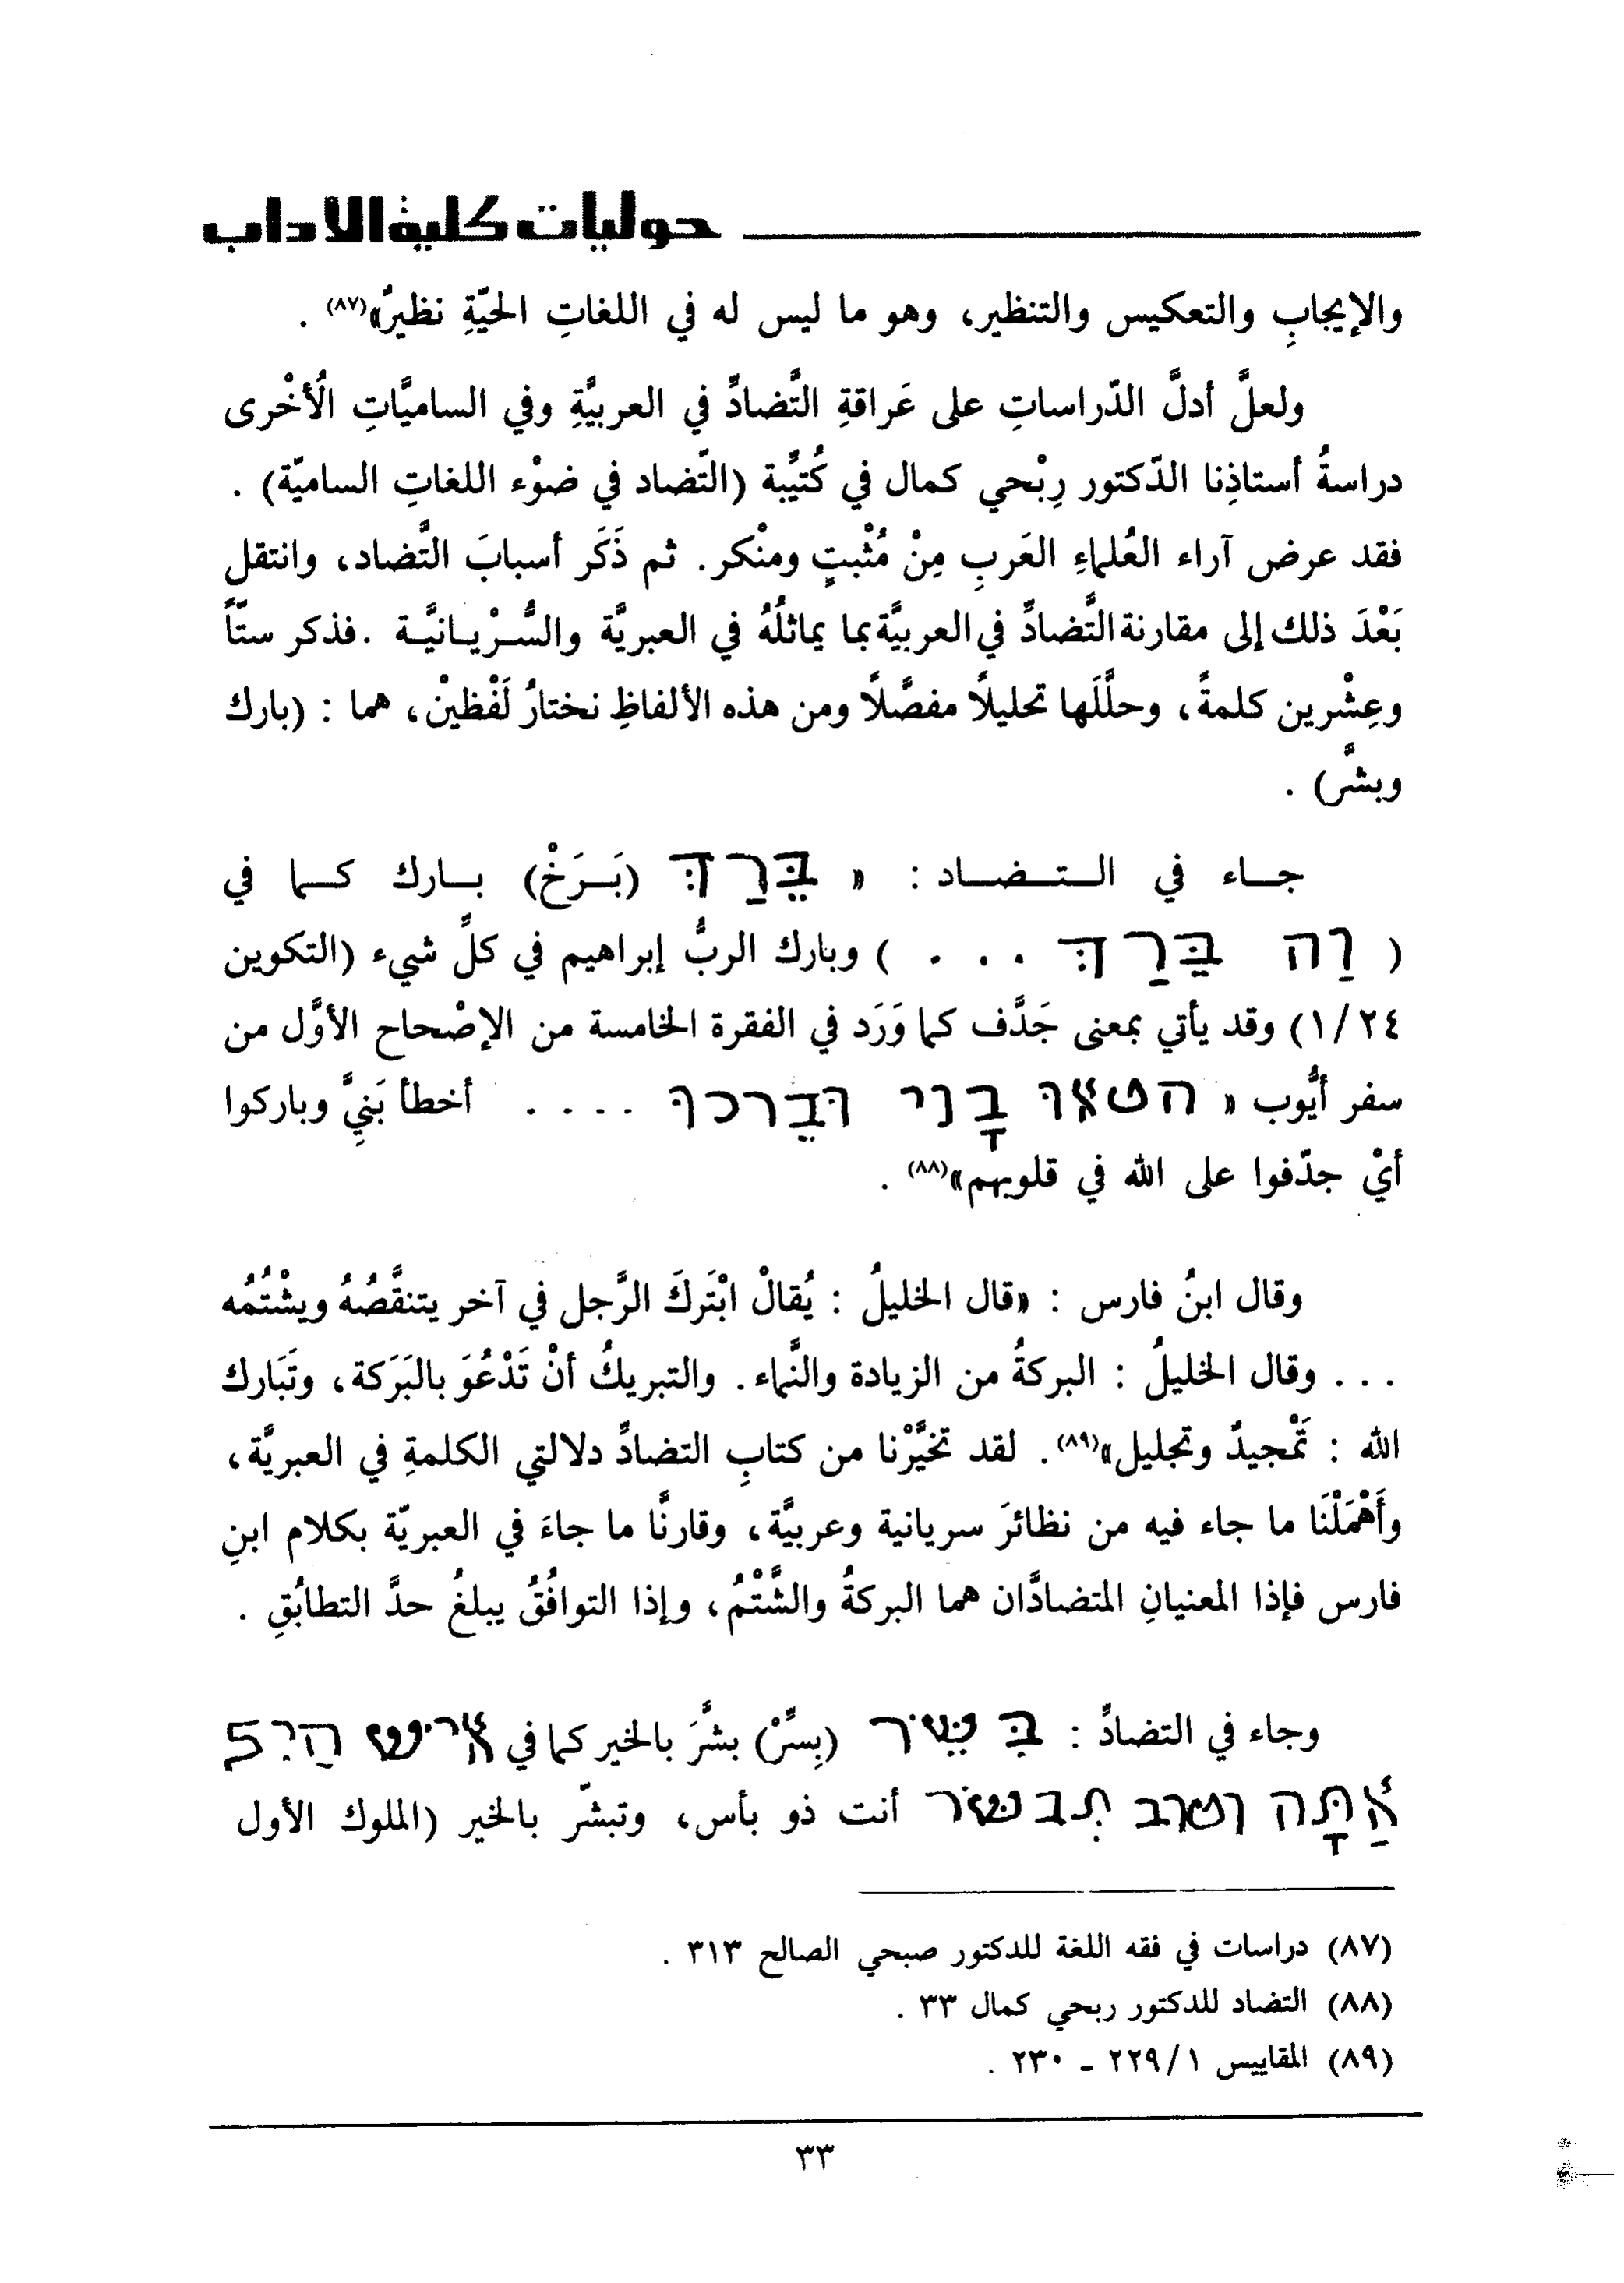 حوليات كلية الاداب
والإيجابِ والتعكيس والتنظير، وهو ما ليس له في اللغاتِ الحيّةِ نظيرٌ»(٨٧) .
ولعلَّ أدلَّ الدّراساتِ على عَراقةِ التَّضادِّ في العربيَّةِ وفي الساميَّاتِ الُأخْرى
دراسةُ أستاذِنا الدّكتور رِبْحي كمال في كُتيِّبة (التّضاد في ضوْء اللغاتِ الساميّة) .
فقد عرض آراء العُلماءِ العَربِ مِنْ مُثْبتٍ ومنْكر. ثم ذَكَر أسبابَ التَّضاد، وانتقل
بَعْدَ ذلك إلى مقارنة التَّضادِّ في العربيَّة بما يماثلُهُ في العبريَّة والسُّرْيانيَّة . فذكر ستّاً
وعِشْرين كلمةً، وحلَّلَها تحليلًا مفصَّلًا ومن هذه الألفاظِ نختارُ لَفْظيْن، هما : (بارك
وبشَّر) .
جاء في التضاد : « בֵּרַךְ (بَرَخْ) بارك كما في
( וַה בֵּרַךְ . . . ) وبارك الربُّ إبراهيم في كلِّ شيء (التكوين
٢٤/١) وقد يأتي بمعنى جَدَّف كما وَرَد في الفقرة الخامسة من الإصْحاح الأوَّل من
سفر أيُّوب « הטאו בָני וּבֵרכוּ . . . . أخطأ بَنيَّ وباركوا
أيْ جدّفوا على الله في قلوبهم»(٨٨) .
وقال ابنُ فارس : «قال الخليلُ : يُقالْ ابْتَركَ الرَّجل في آخر يتنقَّصُهُ ويشْتُمُه
. . . وقال الخليلُ : البركةُ من الزيادة والنَّماء. والتبريكُ أنْ تَدْعُوَ بالبَرَكة، وتَبَارك
الله : تَمْجيدٌ وتجليل»(٨٩). لقد تخيَّرْنا من كتابِ التضادِّ دلالتي الكلمةِ في العبريَّة،
وأَهْمَلْنَا ما جاء فيه من نظائرَ سريانية وعربيَّة، وقارنَّا ما جاءَ في العبريّة بكلام ابنِ
فارس فإذا المعنيانِ المتضادَّان هما البركةُ والشَّتْمُ، وإذا التوافُقُ يبلغُ حدَّ التطابُقِ .
وجاء في التضادِّ : בִּשֵּׂר (بِسِّرْ) بشَّرَ بالخير كما في אִישׁ חַיִל
אַתָּה וטוב תְּבשׂר أنت ذو بأس، وتبشّر بالخير (الملوك الأول
(٨٧) دراسات في فقه اللغة للدكتور صبحي الصالح ٣١٣ .
(٨٨) التضاد للدكتور ربحي كمال ٣٣ .
(٨٩) المقاييس ٢٢٩/١ ـ ٢٣٠ .
٣٣